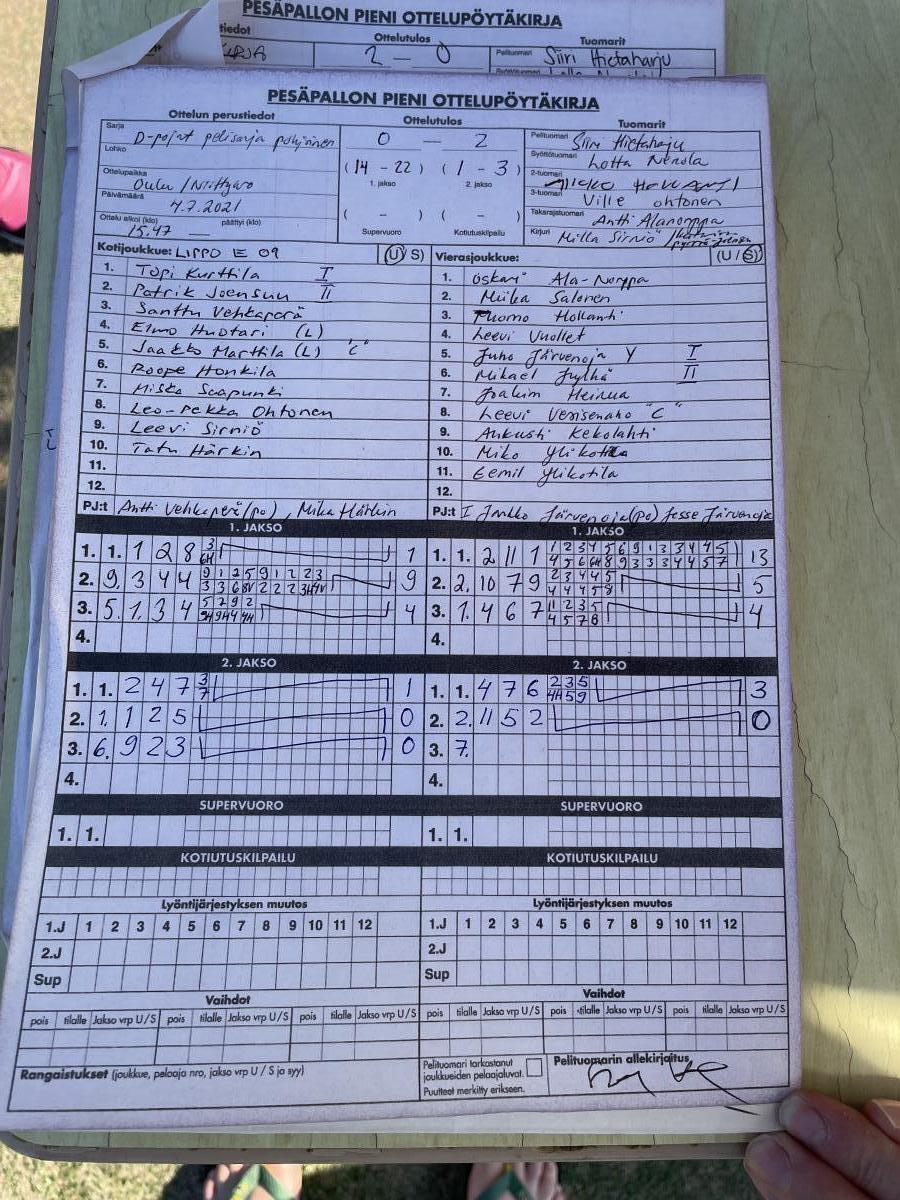 PESÄPALLON PIENI OTTELUPÖYTÄKIRJA
tiedot Ottelutulos Tuomarit
2 – 0 Pelituomari Siiri Hietaharju
PESÄPALLON PIENI OTTELUPÖYTÄKIRJA
Ottelun perustiedot
Sarja D-pojat pelisarja pohjoinen
Lohko
Ottelupaikka Oulu / Niittyaro
Päivämäärä 4.7.2021
Ottelu alkoi (klo) 15.47 päättyi (klo)
Ottelutulos
0 – 2
(14 – 22) (1 – 3)
1. jakso 2. jakso
( – ) ( – )
Supervuoro Kotiutuskilpailu
Tuomarit
Pelituomari Siiri Hietaharju
Syöttötuomari Lotta Nenola
2-tuomari
3-tuomari Ville Ohtonen
Takarajatuomari Antti Alanorppa
Kirjuri Milla Sirniö
Kotijoukkue: LIPPO E 09 (U/S)
1. Topi Kurttila I
2. Patrik Joensuu II
3. Santtu Vehkaperä
4. Elmo Huotari (L)
5. Jaakko Marttila (L) "C"
6. Roope Honkila
7. Miska Saapunki
8. Leo-Pekka Ohtonen
9. Leevi Sirniö
10. Tatu Härkin
11.
12.
PJ:t Antti Vehkaperä (po), Mika Härkin
Vierasjoukkue: (U/S)
1. Oskari Ala-Norppa
2. Miika Salonen
3. Tuomo Hollanti
4. Leevi Vuollet
5. Juho Järvenoja Y I
6. Mikael Jylhä II
7. Joakim Heinua
8. Leevi Vensenaho "C"
9. Aukusti Kekolahti
10. Miko Ylikotila
11. Eemil Ylikotila
12.
PJ:t I Jarkko Järvenoja (po) Jesse Järvenoja
1. JAKSO
1. 1. 1 2 8 3 1
6H
2. 9. 3 4 4 9 1 2 5 9 1 2 2 3 9
3 3 6 8V 2 2 2 3H 4V
3. 5. 1 3 4 5 7 9 2 4
9H 9H 4 4H
4.
1. JAKSO
1. 1. 2 11 1 1 2 3 4 5 6 9 1 3 3 4 4 5 13
4 5 6 6H 8 9 3 3 3 4 4 5 7
2. 2. 10 7 9 2 3 4 4 5 5
4 4 4 5 8
3. 1. 4 6 7 1 2 3 5 4
4 5 7 8
4.
2. JAKSO
1. 1. 2 4 7 3 1
7
2. 1. 1 2 5 0
3. 6. 9 2 3 0
4.
2. JAKSO
1. 1. 4 7 6 2 3 5 3
4H 5 9
2. 2. 11 5 2 0
3. 7.
4.
SUPERVUORO
1. 1.
SUPERVUORO
1. 1.
KOTIUTUSKILPAILU
KOTIUTUSKILPAILU
Lyöntijärjestyksen muutos
1.J 1 2 3 4 5 6 7 8 9 10 11 12
2.J
Sup
Lyöntijärjestyksen muutos
1.J 1 2 3 4 5 6 7 8 9 10 11 12
2.J
Sup
Vaihdot
pois tilalle Jakso vrp U/S pois tilalle Jakso vrp U/S pois tilalle Jakso vrp U/S
Vaihdot
pois tilalle Jakso vrp U/S pois tilalle Jakso vrp U/S pois tilalle Jakso vrp U/S
Rangaistukset (joukkue, pelaaja nro, jakso vrp U / S ja syy)
Pelituomari tarkastanut
joukkueiden pelaajaluvat.
Puutteet merkitty erikseen.
Pelituomarin allekirjoitus